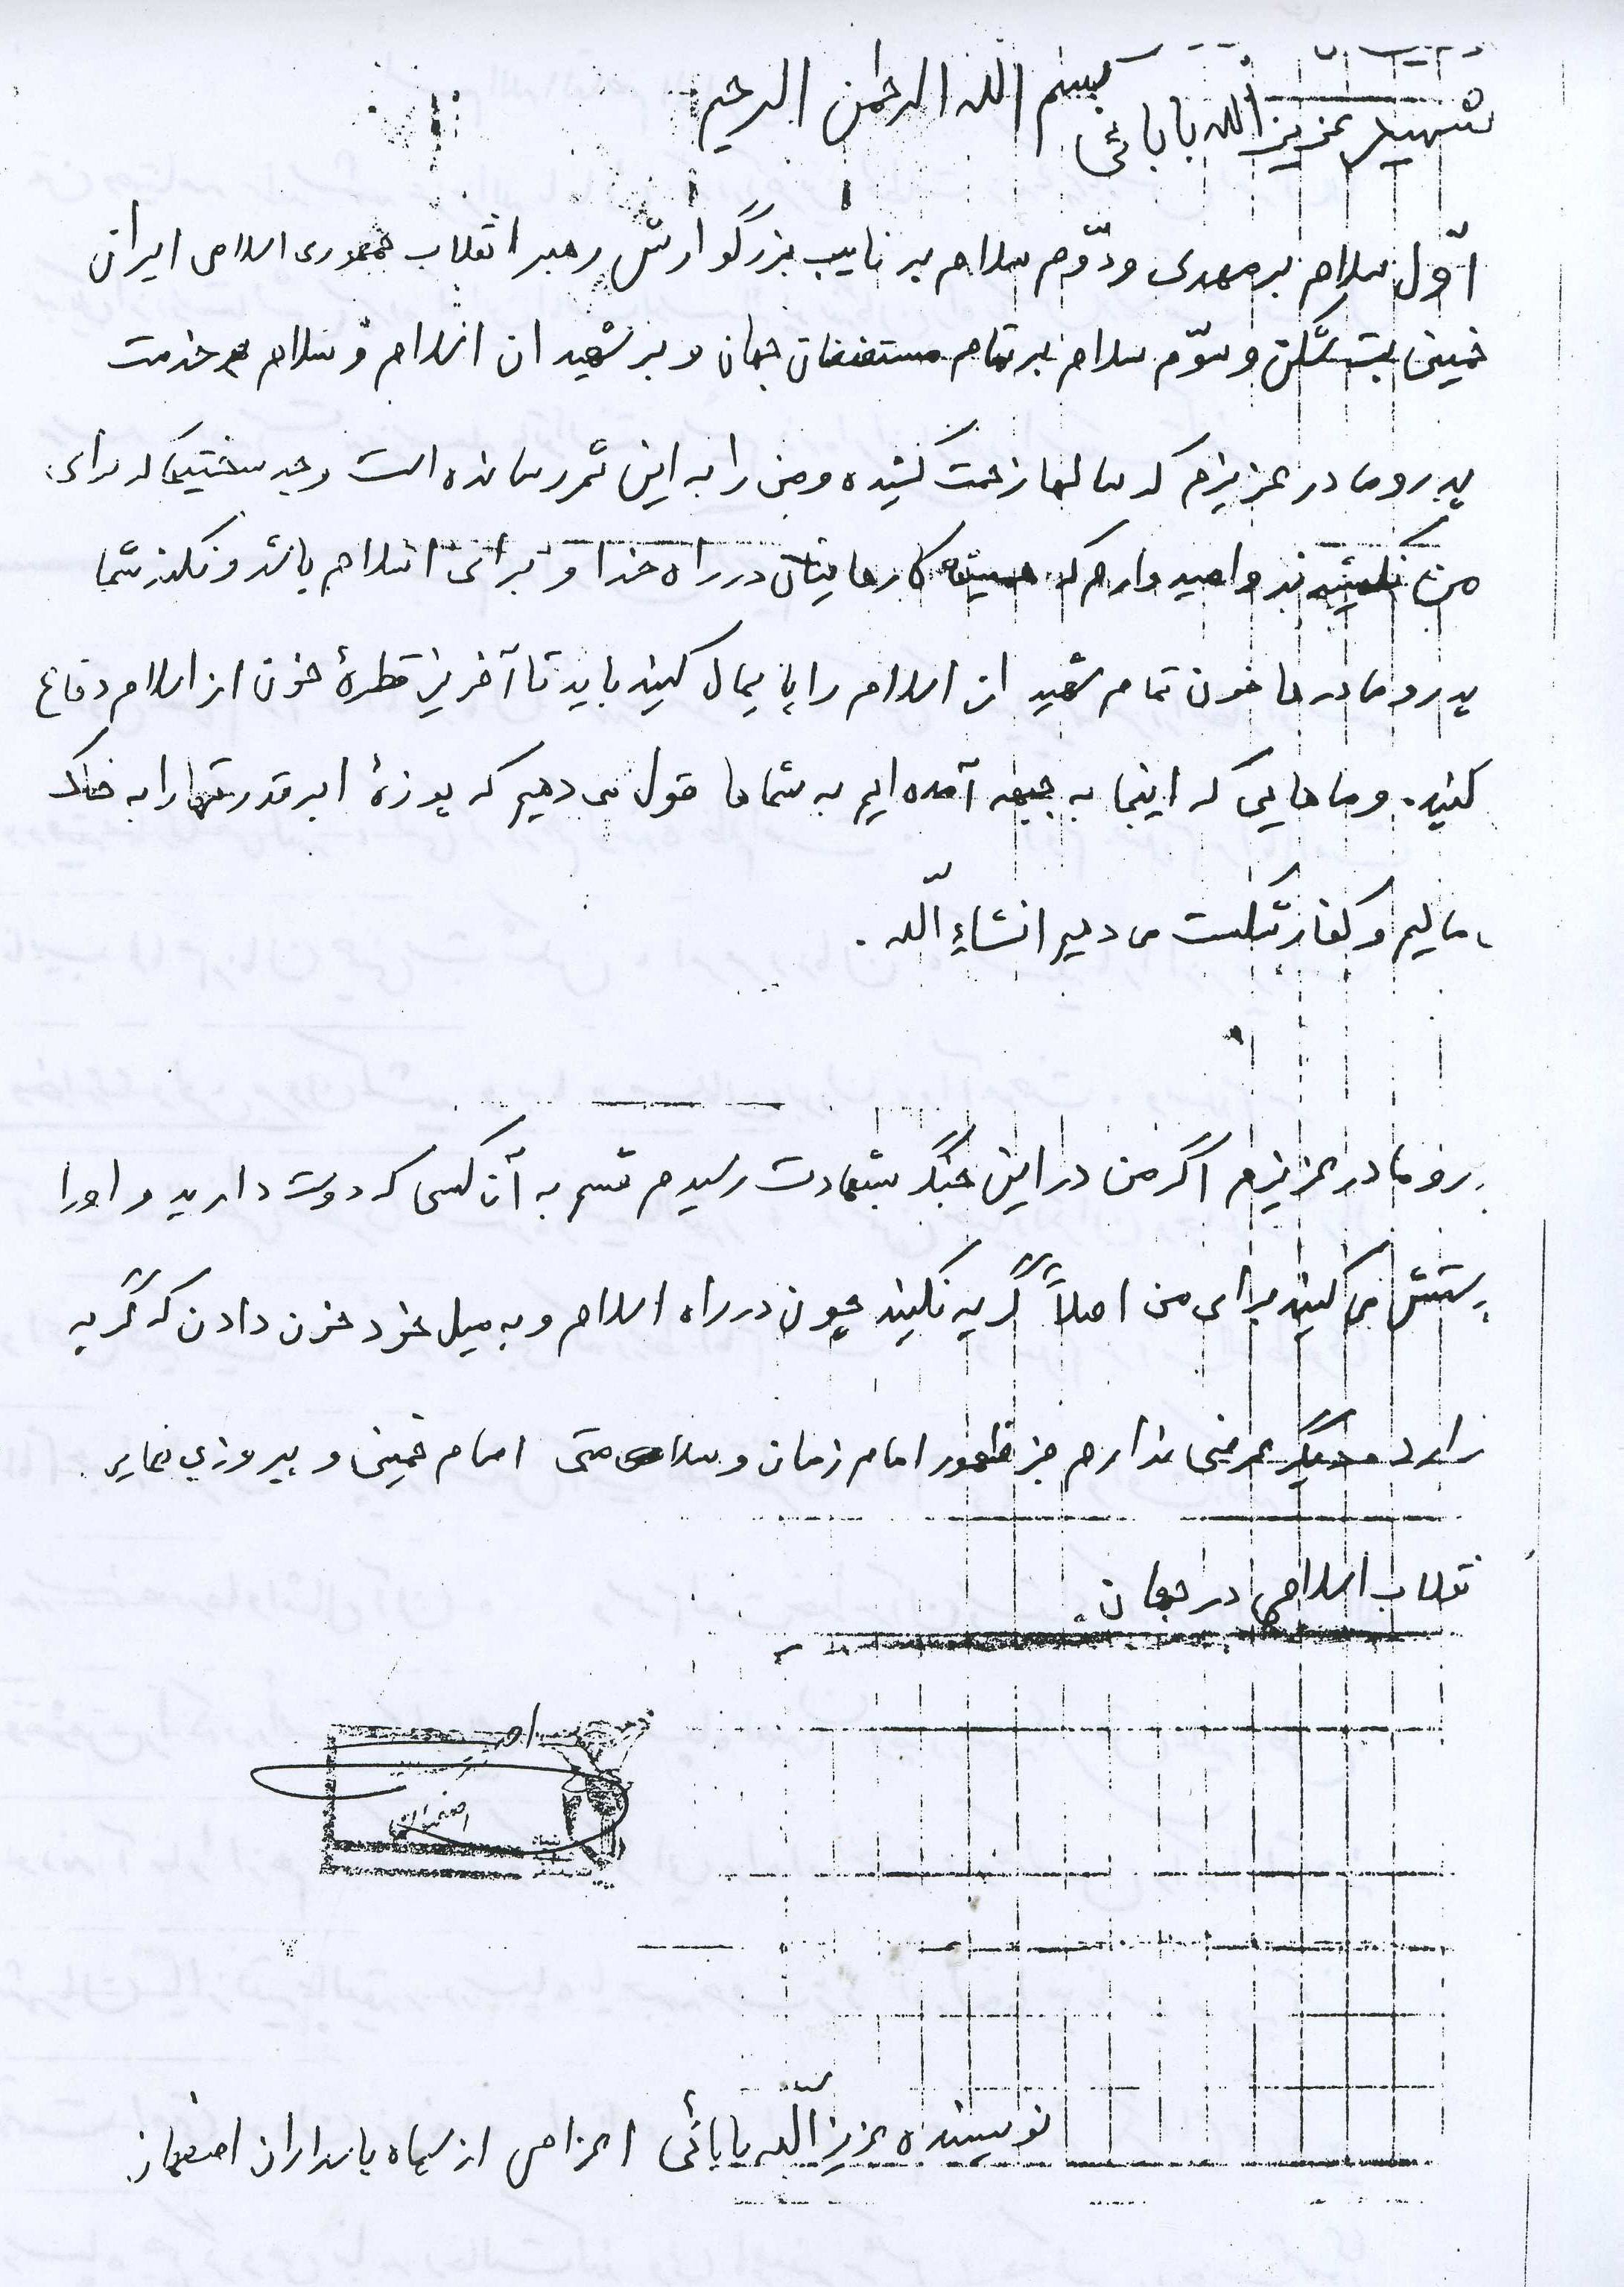 بسم الله الرحمن الرحیم
شهید عزیز الله بابائی
اوّل سلام بر مهدی و دوّم سلام بر نایب بزرگوارش رهبر انقلاب جمهوری اسلامی ایران
خمینی بت شکن و سوّم سلام بر تمام مستضعفان جهان و بر شهیدان اسلام و سلام بر خدمت
پدر و مادر عزیزم که سالها زحمت کشیده و من را به این ثمر رسانده است و چه سختیها که برای
من نکشیدند و امیدوارم که همیشه کارهایتان در راه خدا و برای اسلام باشد و نکند شما
پدر و مادرها خون تمام شهیدان اسلام را پایمال کنید باید تا آخرین قطرهٔ خون از اسلام دفاع
کنید. و ماهایی که اینجا به جبهه آمده‌ایم به شماها قول می‌دهیم که پوزهٔ ابرقدرتها را به خاک
مالیم و کفار شکست می‌دهیم انشاءِ الّله .
در و مادر عزیزم اگر من در این جنگ بشهادت رسیدم قسم به آن کسی که دوست دارید و او را
پرستش می‌کنید برای من اصلاً گریه نکنید چون در راه اسلام و به میل خود خون دادن که گریه
دیگر عرضی ندارم جز ظهور امام زمان و سلامتی امام خمینی و پیروزی نهایی
نقلاب اسلامی در جهان
اصفهان
نویسنده عزیز الّله بابائی اعزامی از سپاه پاسداران اصفهان